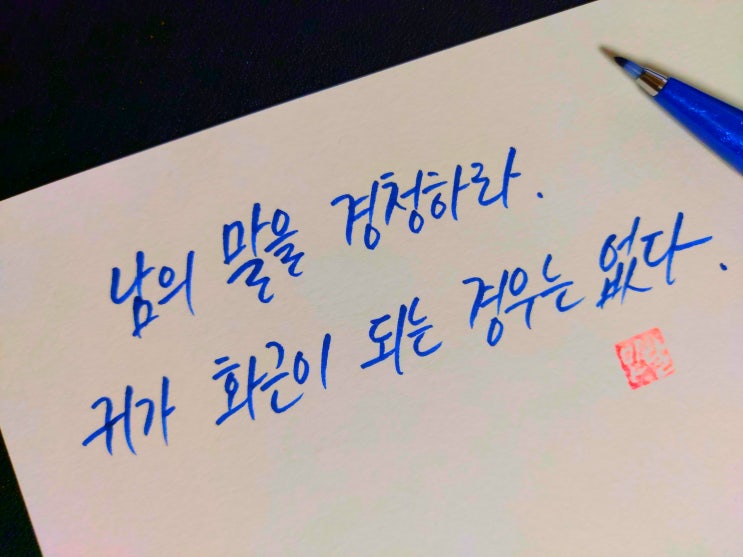 남의 말을 경청하라.
귀가 화근이 되는 경우는 없다.